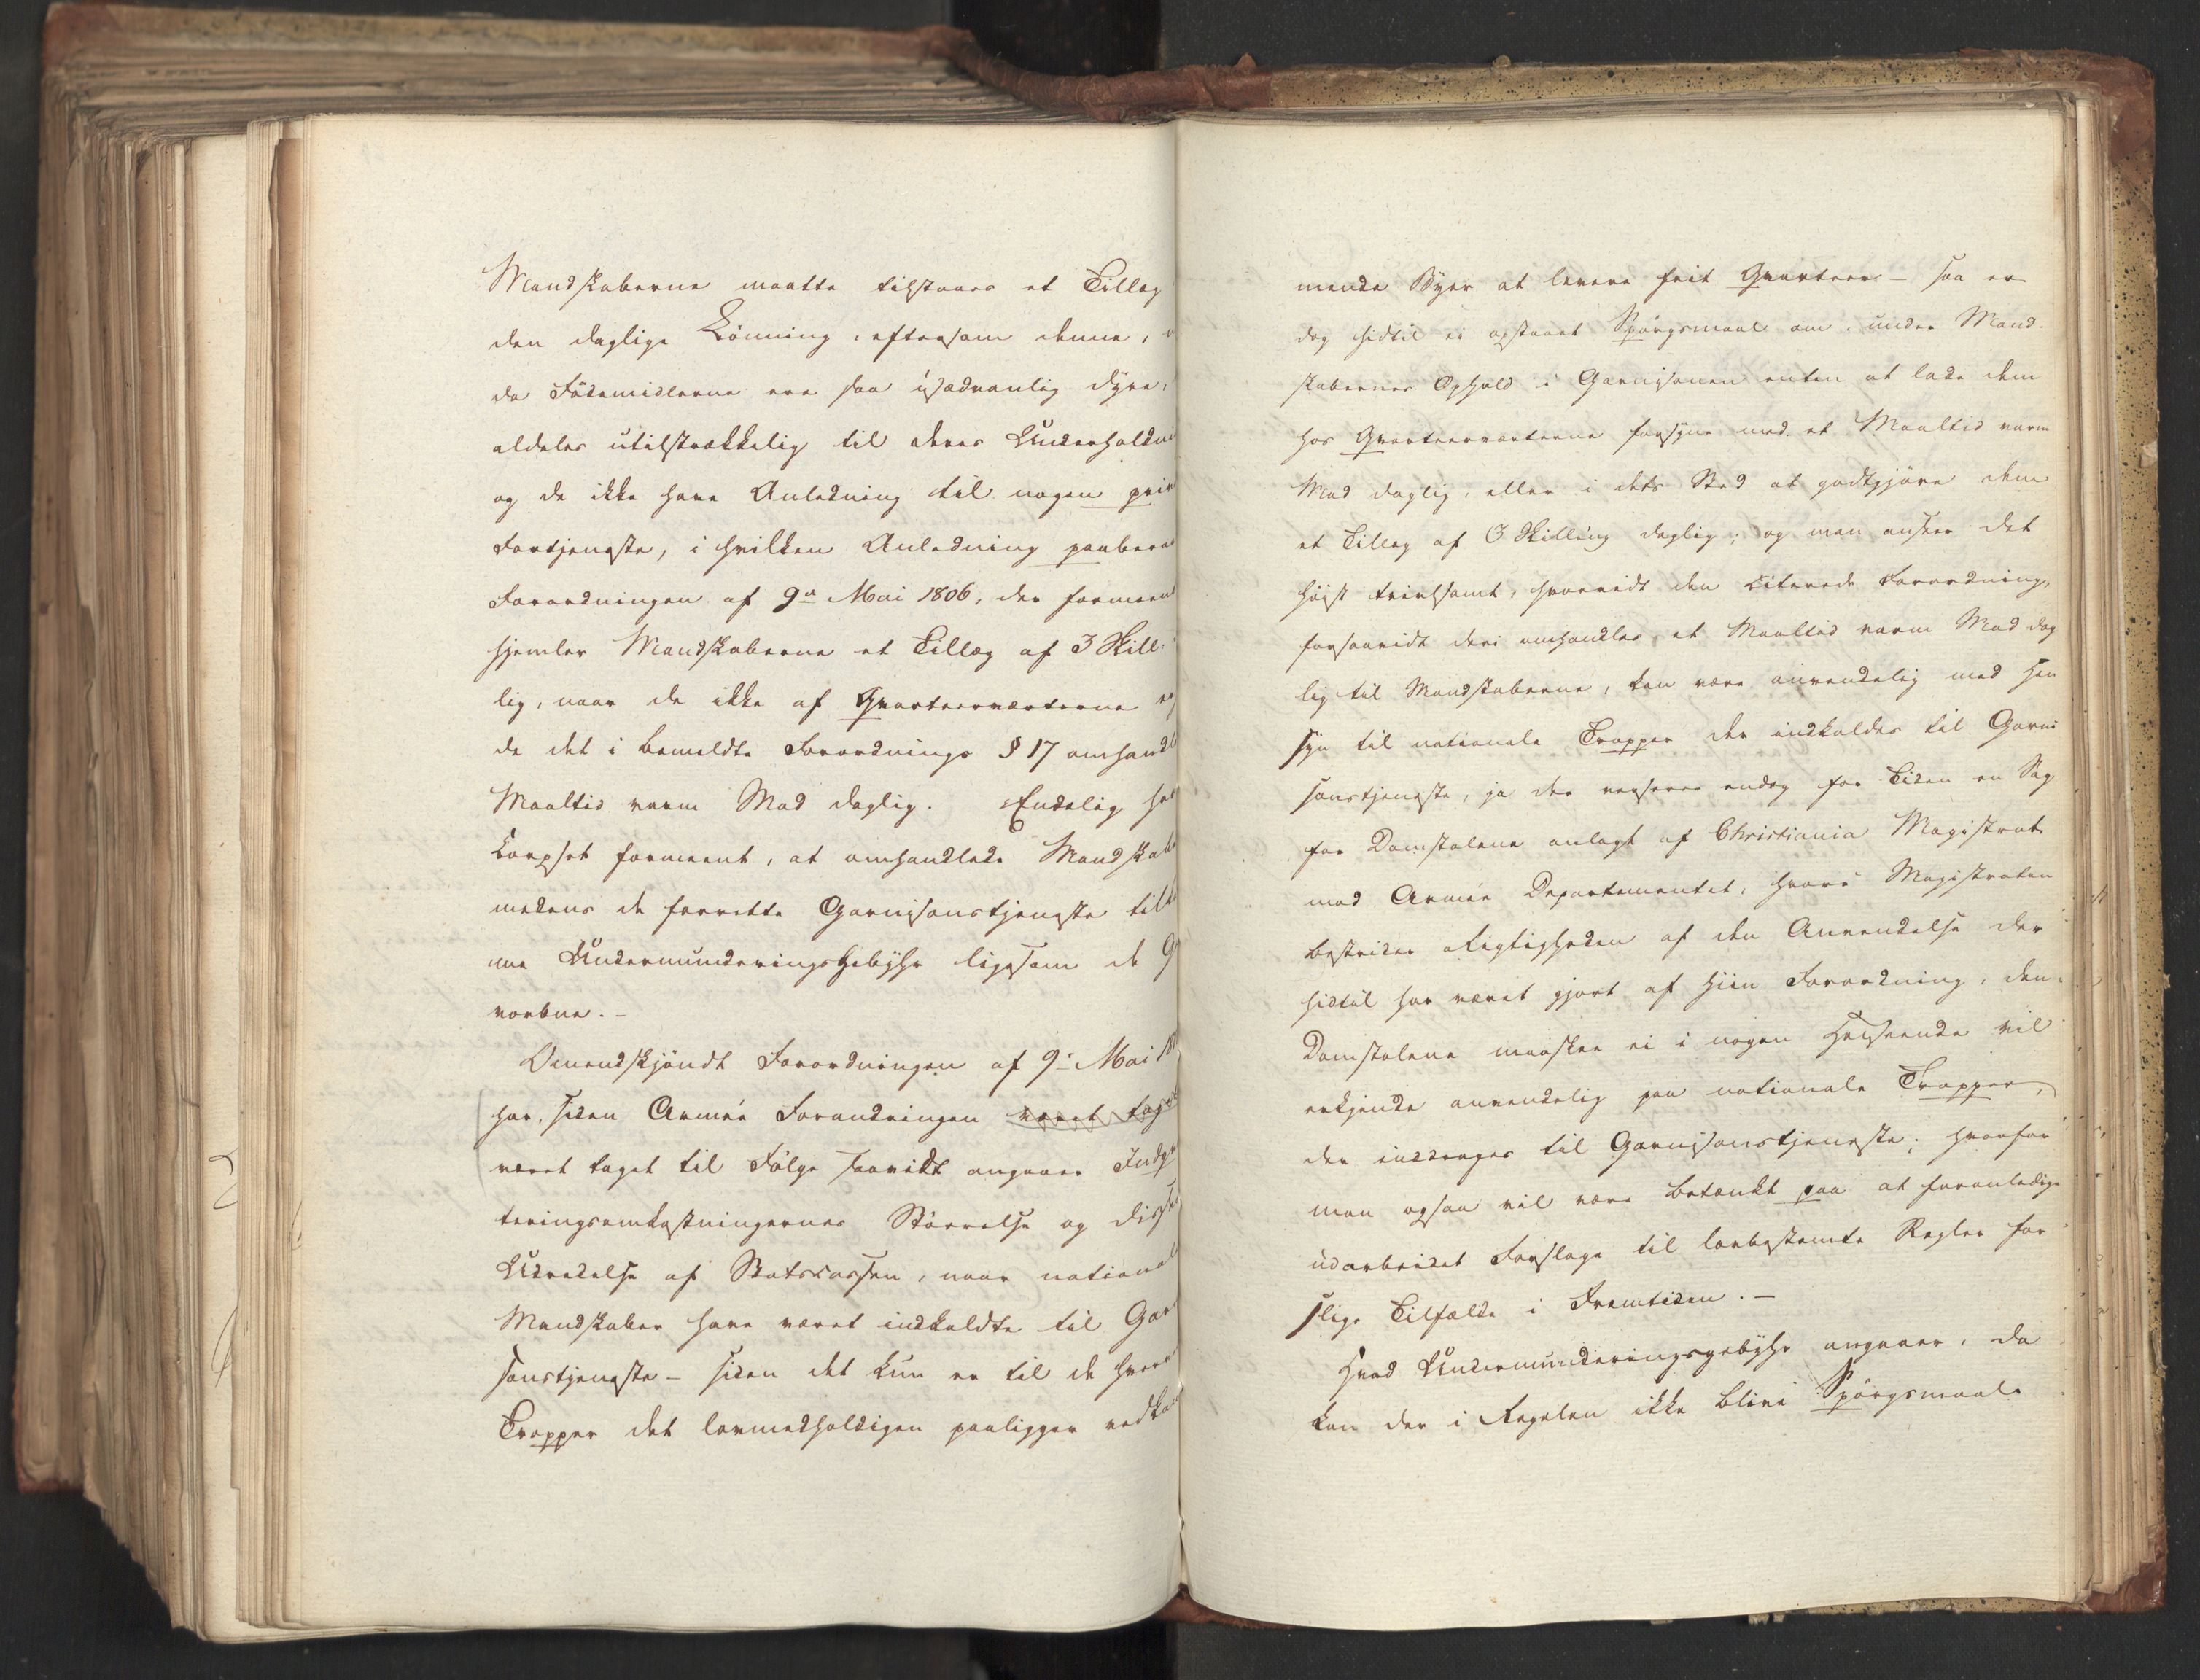 Mandskaberne maatte tilstaaes et Tillæg
den daglige Lönning, eftersom denne,
da Födemidlerne ere saa usædvanlig dyre,
aldeles utilstrækkelig til deres Underholdni
og de ikke have Anledning til nogen priv
Fortjeneste, i hvilken Anledning paabera
Forordningen af 9de Mai 1806, der formeent
hjemler Mandskaberne et Tillæg af 3 Skill:
lig, naar de ikke af Qvarteerværterne
de det i bemeldte Forordnings § 17 omhandl
Maaltid varm Mad daglig. Endelig har
Korpset formeent, at omhandlede Mandskab
medens de forrette Garnisonstjeneste till
me Undermunderingsgebyhr ligesom de g
vorbne. -
Omendskjöndt Forordningen af 9de Mai 18
har, siden Armée Forandringen været taget
været taget til Fölge saavidt angaaer Indqv
teringsomkostningernes Störrelse og disse
Udredelse af Statscassen, naar national
Mandskaber have været indkaldte til Gar
sonstjeneste - siden det kun er til de hverv
Tropper det lovmedholdigen paaligger vedkom
mende Byer at levere frit Qvarteer - saa er
dog hidtil ei opstaaet Spörgsmaal om, under Mand-
skabernes Ophold i Garnisonen enten at lade dem
hos Qvarteerværterne forsyne med et Maaltid varm
Mad daglig, eller i dets Sted at godtgjöre dem
et Tillæg af 3 Skilling daglig; og man anseer det
höist tvivlsomt, hvorvidt den citerede Forordning,
forsaavidt deri omhandles et Maaltid varm Mad dag
lig til Mandskaberne, kan være anvendelig med Hen
syn til nationale Tropper der indkaldes til Garni
sonstjeneste, ja der verserer endog for Tiden en Sag
for Domstolene anlagt af Christiania Magistrat
mod Armée Departementet, hvori Magistraten
bestrider Rigtigheden af den Anvendelse der
hidtil har været gjort af hiin Forordning, den
Domstolene maaskee ei i nogen Henseende vil
erkjende anvendelig paa nationale Tropper,
der inddrages til Garnisonstjeneste; hvorfor
man ogsaa vil være betænkt paa at foranledige
udarbeidet Forslag til lovbestemte Regler for
slige Tilfælde i Fremtiden. -
Hvad Undermunderingsgebyhr angaaer, da
kan der i Regelen ikke blive Spörgsmaal